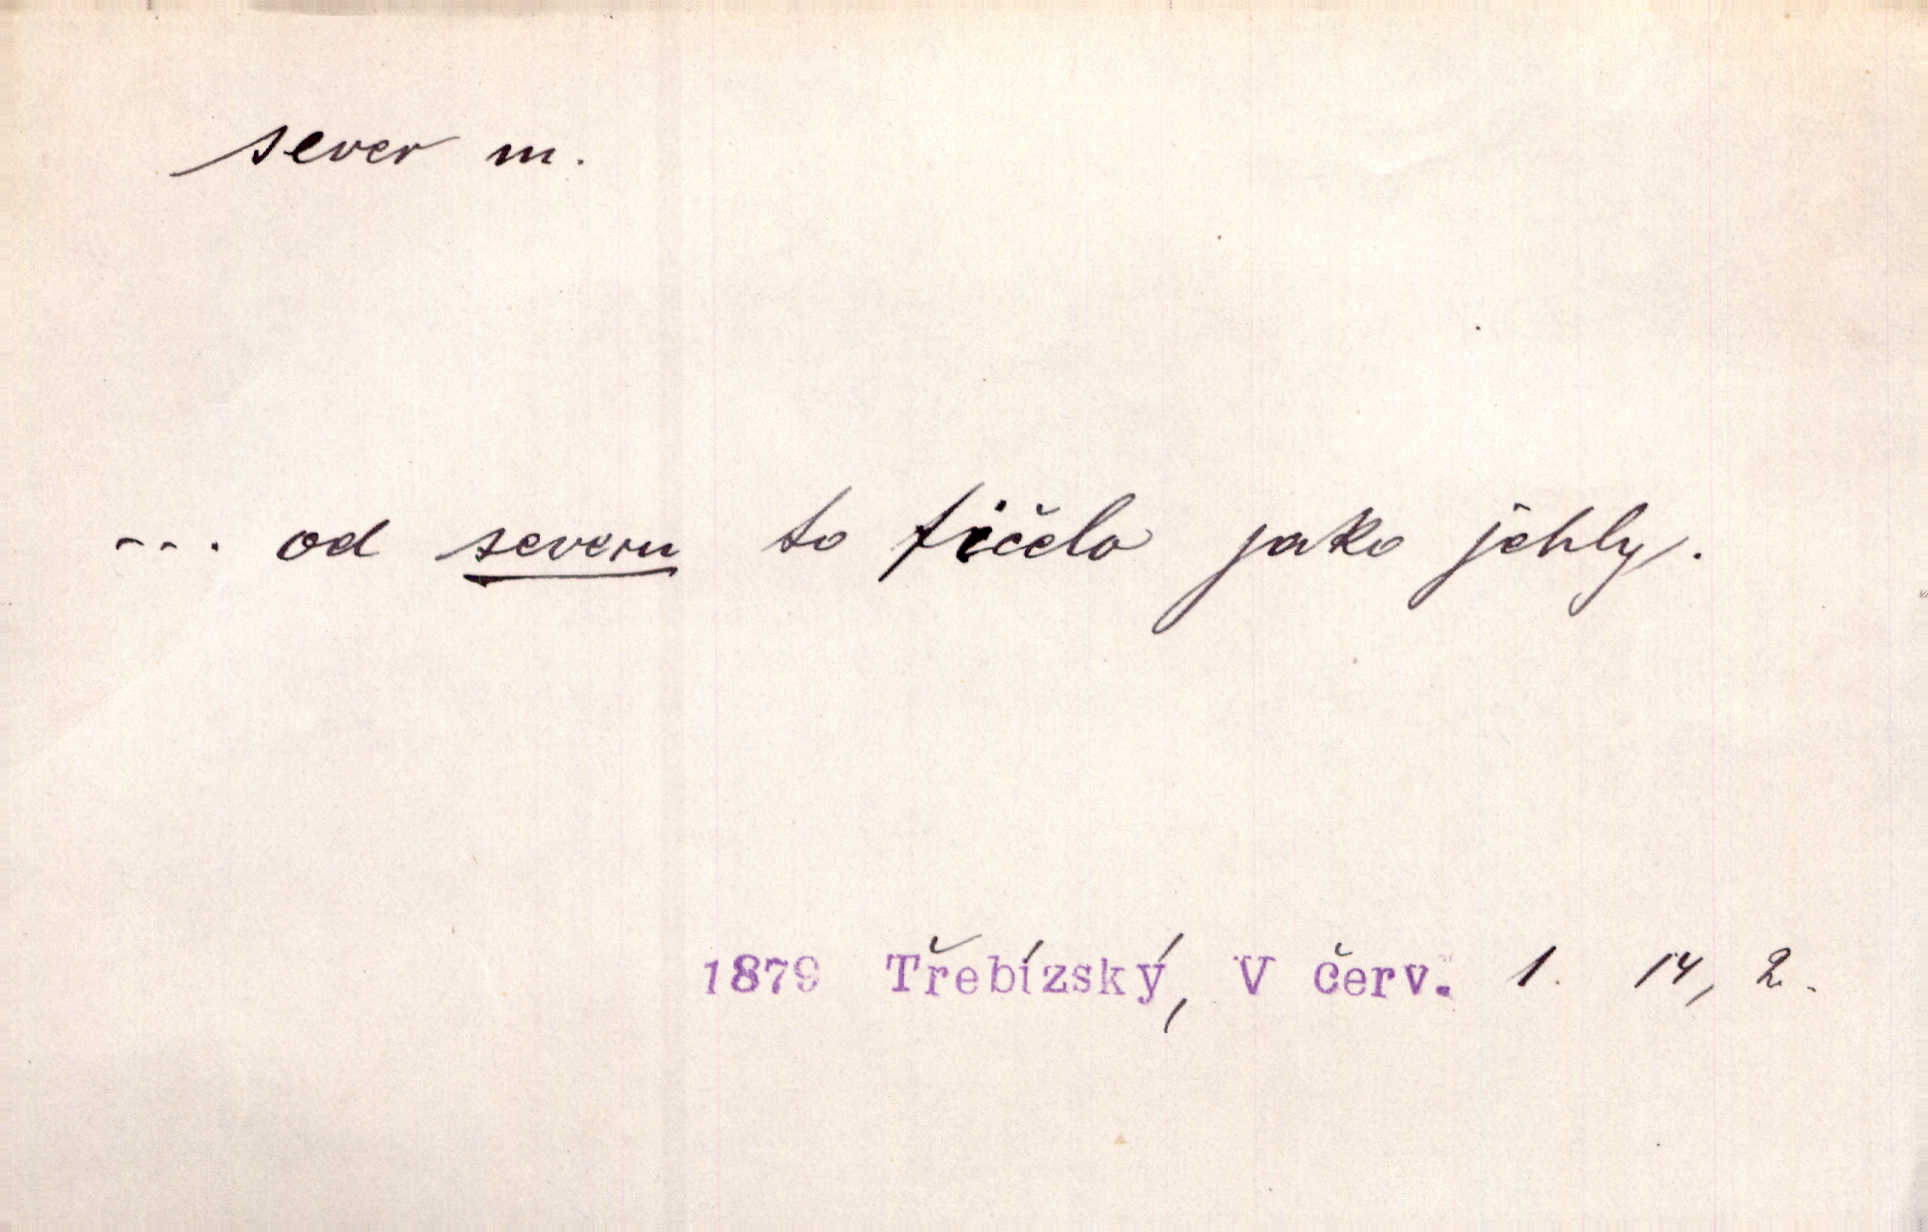 sever m.
--. od severu to fičelo jako jehly.
1879 Třebízský, V červ. 1. 14, 2.